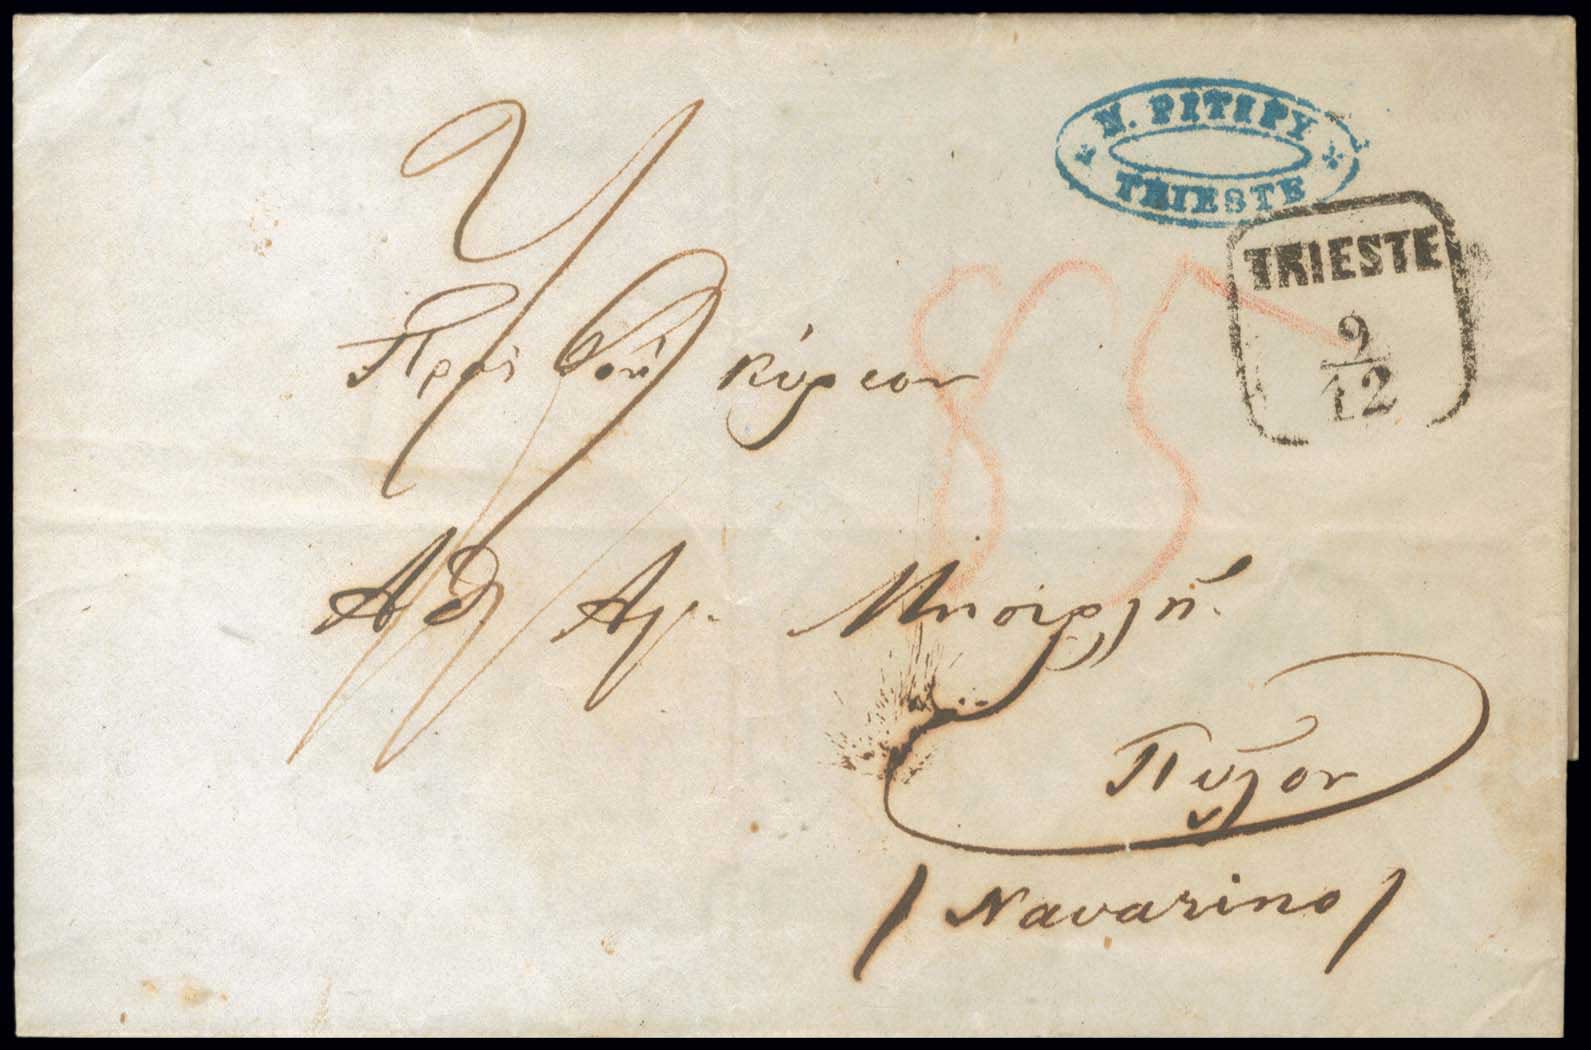 N. PITIPY
TRIESTE
TRIESTE
9
12
85
Πρὸς τὸν κύριον
Ἀδ Αγ.
Πύλον
/ Navarino /